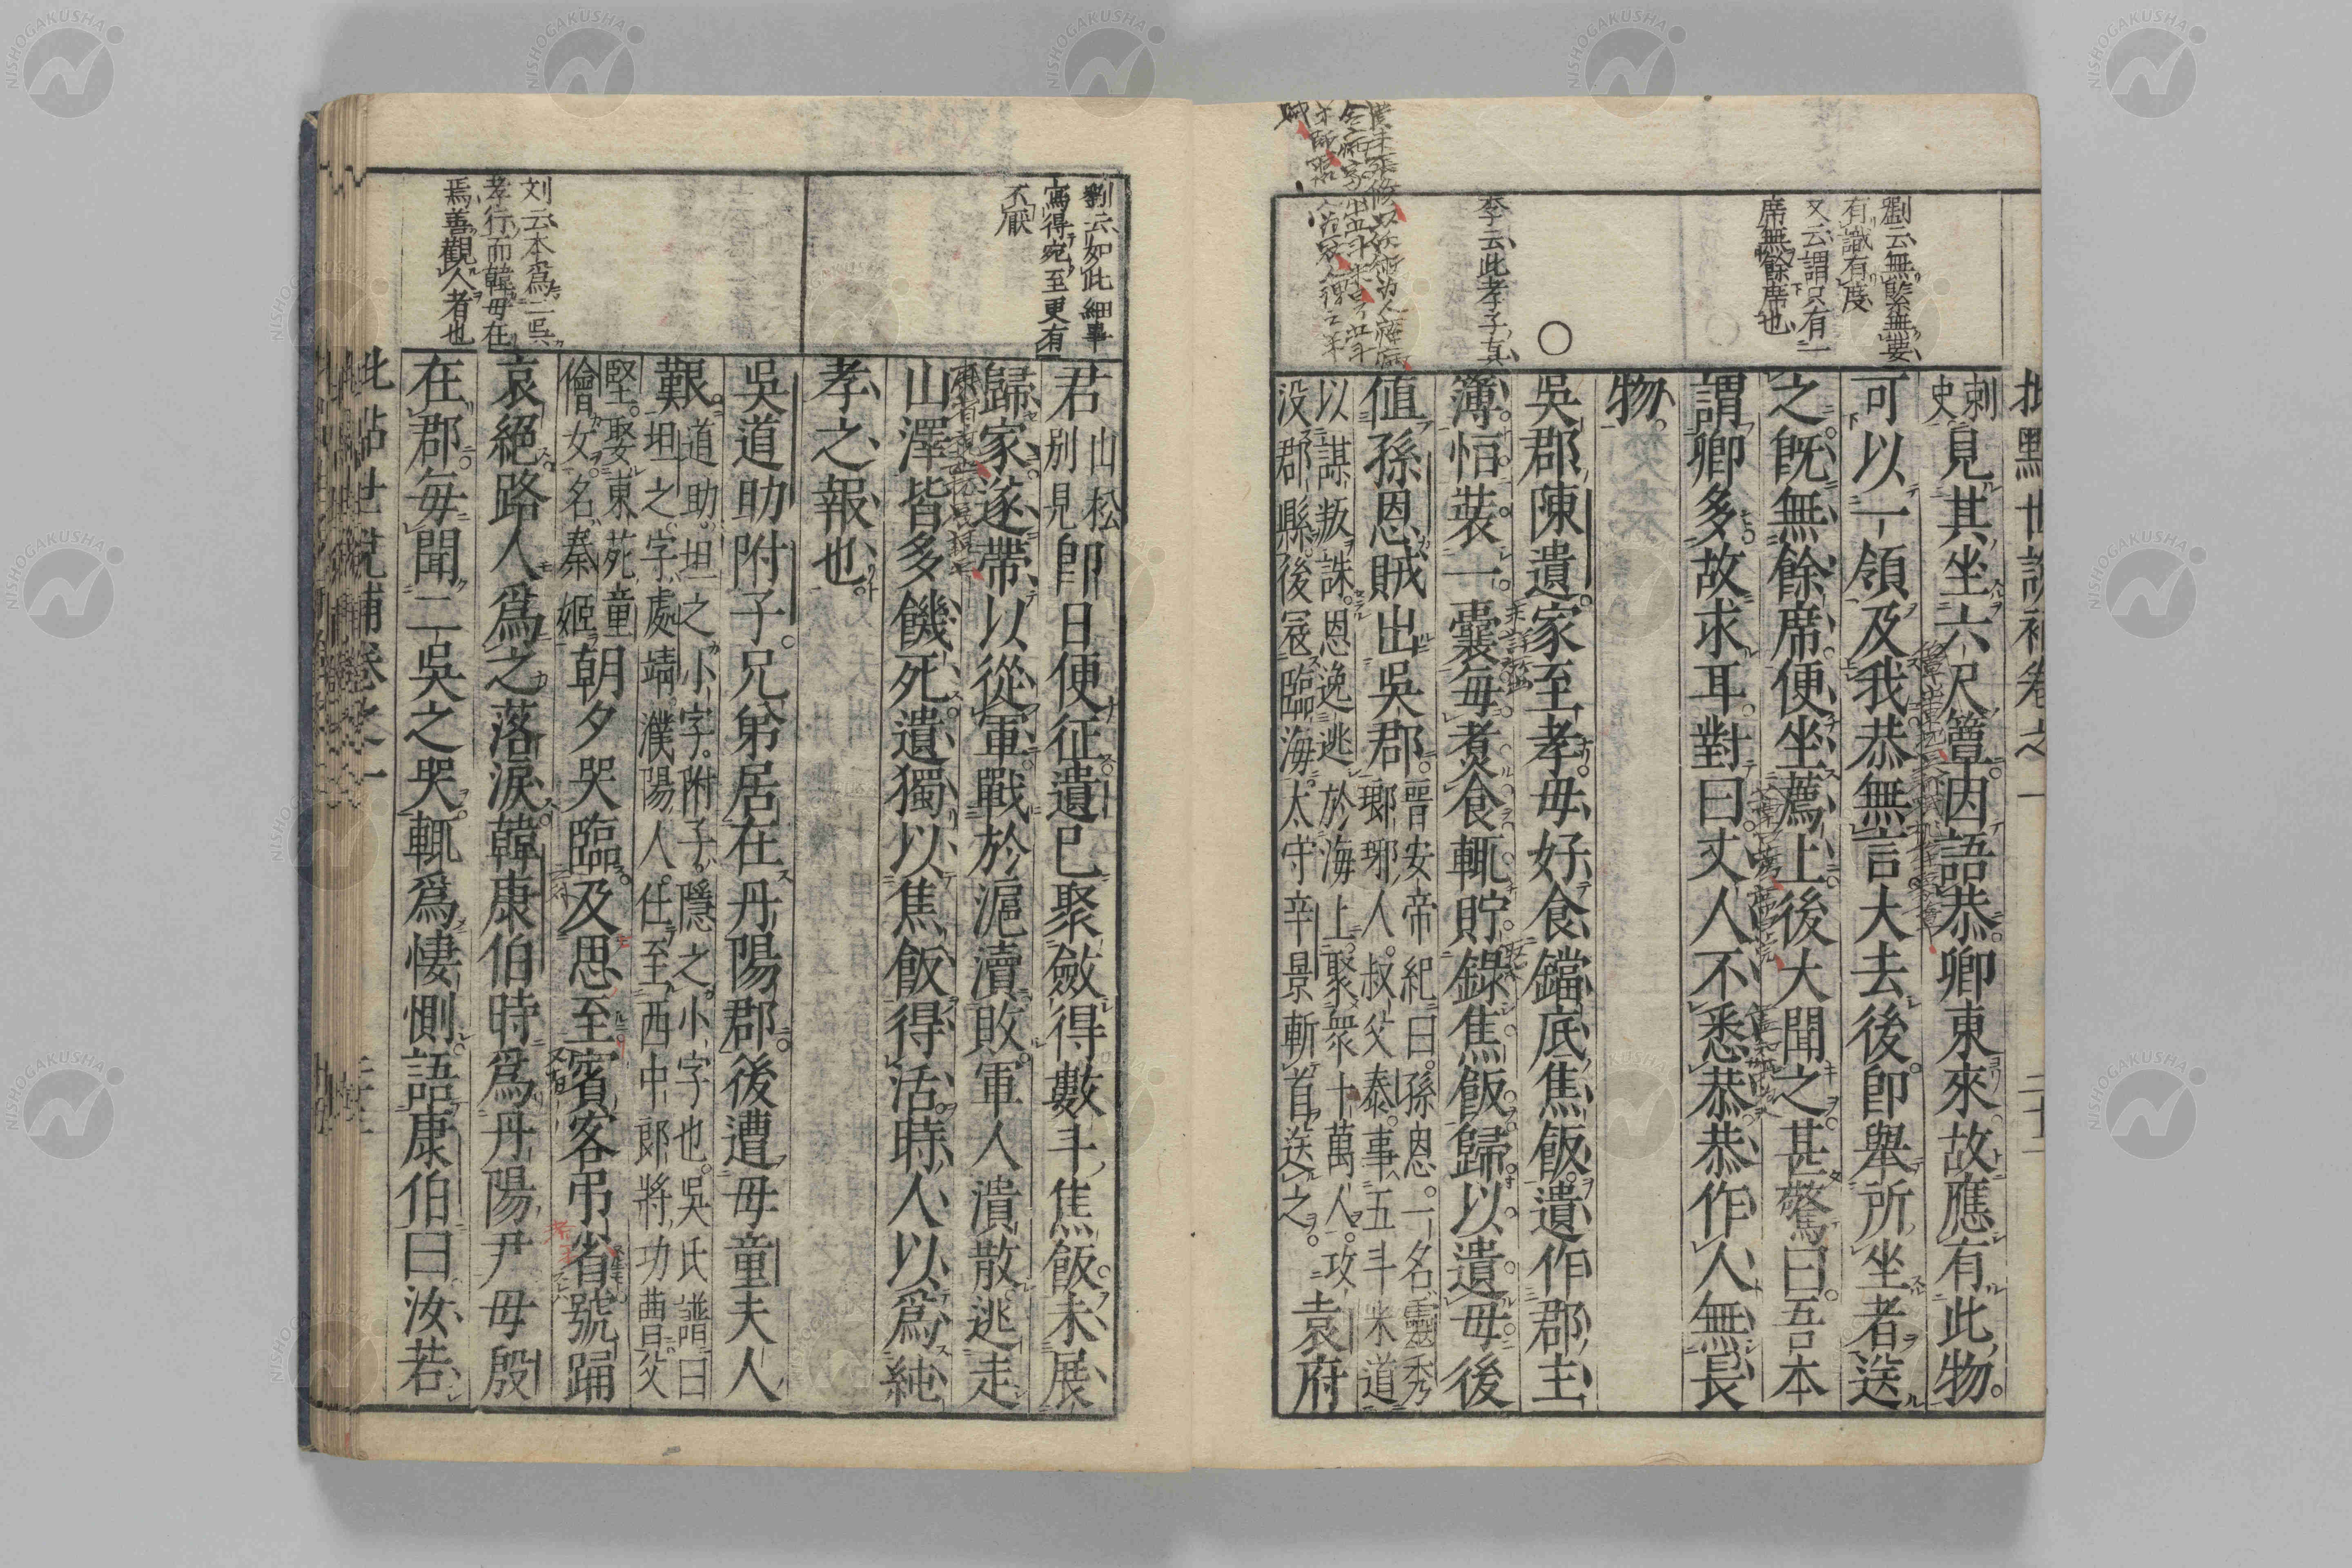 批點世說補卷之一
劉云無緊無要
有識有度
又云謂只有一
席無餘席也
李云此孝子真
刺史見其坐六尺簟因語恭卿東來故應有此物
可以一領及我恭無言大去後即舉所坐者送
之既無餘席便坐薦上後大聞之甚驚曰吾本
謂卿多故求耳對曰丈人不悉恭恭作人無長
物
○
吳郡陳遺家至孝母好食鐺底焦飯遺作郡主
簿恒裝一囊每煑食輒貯錄焦飯歸以遺母後
值孫恩賊出吳郡
晉安帝紀曰孫恩一名靈秀
瑯琊人叔父泰事五斗米道
以謀叛誅恩逸逃於海上聚衆十萬人攻
没郡縣後寇臨海太守辛景斬首送之
袁府
劉云如此細事
寫得宛至更有
不厭
刘云本爲二吳
孝行而韓母在
焉善觀人者也
君
山松
別見
即日便征遺已聚斂得數斗焦飯未展
歸家遂帶以從軍戰於滬瀆敗軍人潰散逃走
山澤皆多饑死遺獨以焦飯得活時人以爲純
孝之報也
吳道助附子兄弟居在丹陽郡後遭母童夫人
艱
道助坦之小字附子隱之小字也吳氏譜曰
坦之字處靖濮陽人仕至西中郎將功曹父
堅娶東苑童
儈女名秦姬
朝夕哭臨及思至賓客弔省號踊
哀絕路人爲之落淚韓康伯時爲丹陽尹母殷
在郡每聞二吳之哭輒爲悽惻語康伯曰汝若
批點世說補卷之一